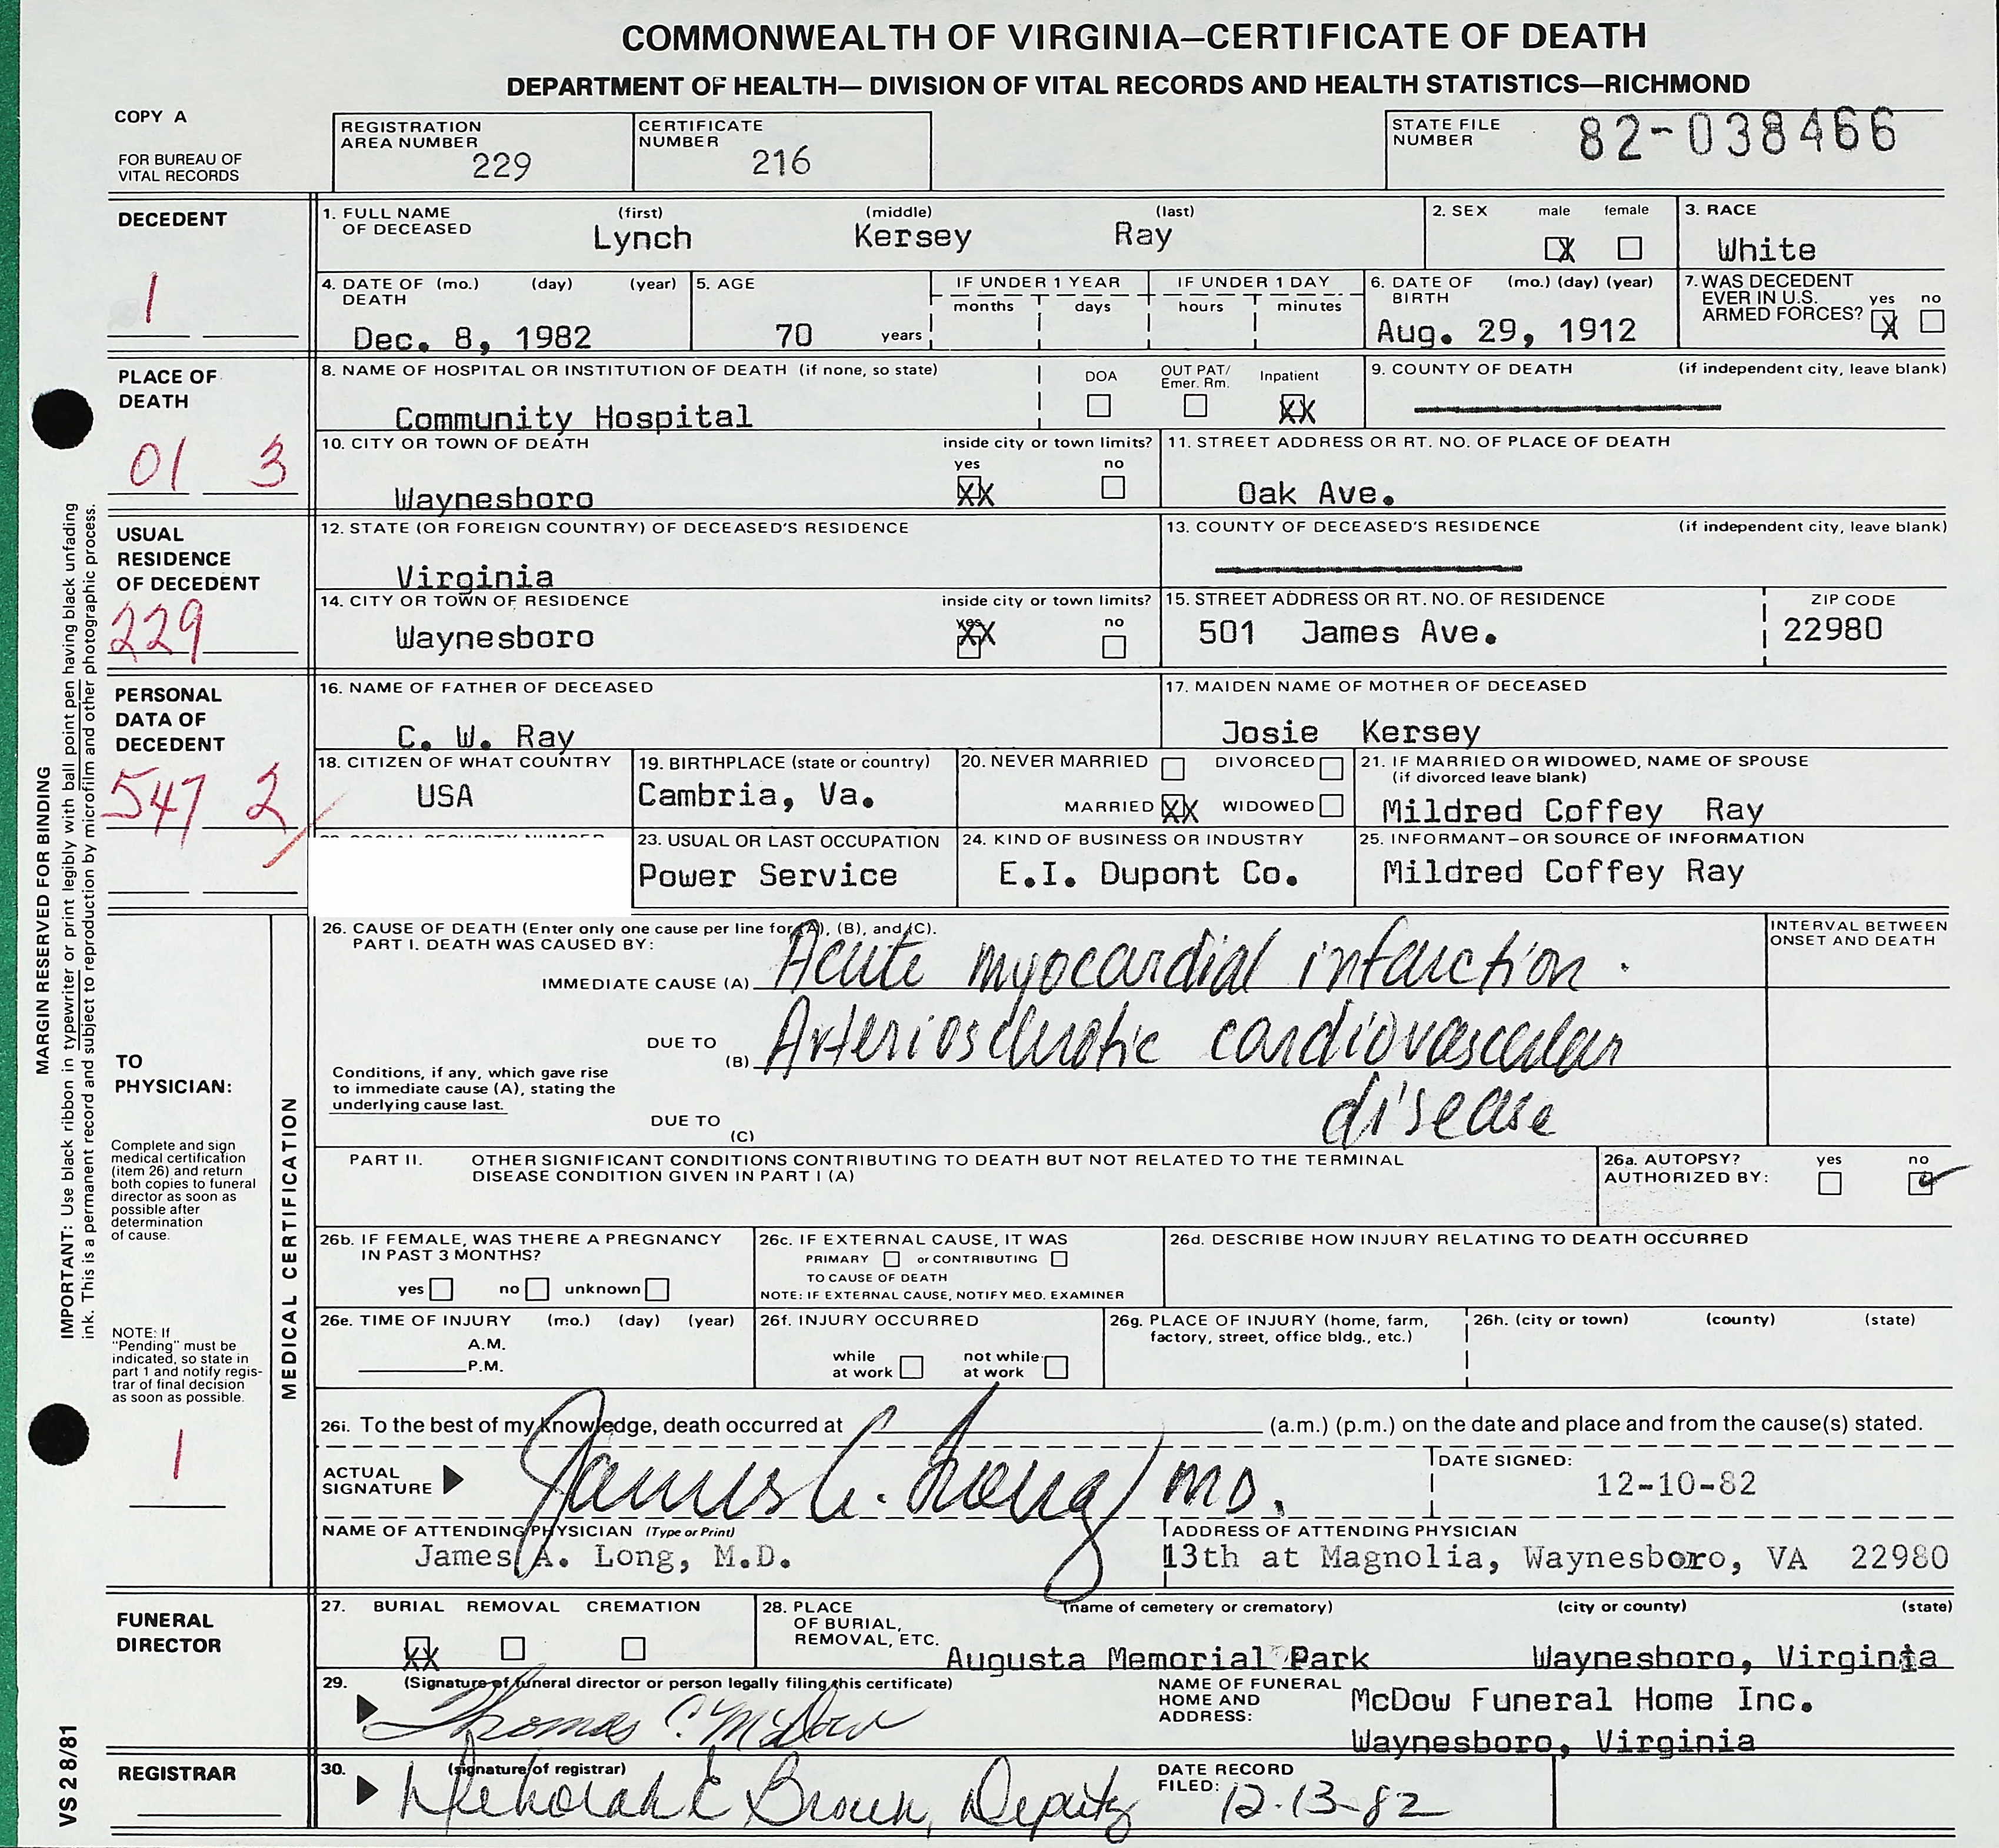 COMMONWEALTH OF VIRGINIA—CERTIFICATE OF DEATH
DEPARTMENT OF HEALTH— DIVISION OF VITAL RECORDS AND HEALTH STATISTICS—RICHMOND
COPY A
FOR BUREAU OF
VITAL RECORDS
REGISTRATION
AREA NUMBER
229
CERTIFICATE
NUMBER
216
STATE FILE
NUMBER
82-038466
DECEDENT
1
1. FULL NAME
OF DECEASED
(first) (middle) (last)
Lynch Kersey Ray
2. SEX male female
X
3. RACE
White
4. DATE OF (mo.) (day) (year)
DEATH
Dec. 8, 1982
5. AGE
70 years
IF UNDER 1 YEAR
months days
IF UNDER 1 DAY
hours minutes
6. DATE OF (mo.) (day) (year)
BIRTH
Aug. 29, 1912
7. WAS DECEDENT
EVER IN U.S.
ARMED FORCES?
yes no
X
PLACE OF
DEATH
01 3
8. NAME OF HOSPITAL OR INSTITUTION OF DEATH (if none, so state)
Community Hospital
DOA
OUT PAT/
Emer. Rm.
Inpatient
XX
9. COUNTY OF DEATH (if independent city, leave blank)
10. CITY OR TOWN OF DEATH
Waynesboro
inside city or town limits?
yes no
XX
11. STREET ADDRESS OR RT. NO. OF PLACE OF DEATH
Oak Ave.
USUAL
RESIDENCE
OF DECEDENT
229
12. STATE (OR FOREIGN COUNTRY) OF DECEASED'S RESIDENCE
Virginia
13. COUNTY OF DECEASED'S RESIDENCE (if independent city, leave blank)
14. CITY OR TOWN OF RESIDENCE
Waynesboro
inside city or town limits?
yes no
XX
15. STREET ADDRESS OR RT. NO. OF RESIDENCE
501 James Ave.
ZIP CODE
22980
PERSONAL
DATA OF
DECEDENT
547 2
16. NAME OF FATHER OF DECEASED
C. W. Ray
17. MAIDEN NAME OF MOTHER OF DECEASED
Josie Kersey
18. CITIZEN OF WHAT COUNTRY
USA
19. BIRTHPLACE (state or country)
Cambria, Va.
20. NEVER MARRIED DIVORCED
MARRIED XX WIDOWED
21. IF MARRIED OR WIDOWED, NAME OF SPOUSE
(if divorced leave blank)
Mildred Coffey Ray
23. USUAL OR LAST OCCUPATION
Power Service
24. KIND OF BUSINESS OR INDUSTRY
E.I. Dupont Co.
25. INFORMANT—OR SOURCE OF INFORMATION
Mildred Coffey Ray
TO
PHYSICIAN:
Complete and sign
medical certification
(item 26) and return
both copies to funeral
director as soon as
possible after
determination
of cause.
NOTE: If
"Pending" must be
indicated, so state in
part 1 and notify regis-
trar of final decision
as soon as possible.
1
MEDICAL CERTIFICATION
26. CAUSE OF DEATH (Enter only one cause per line for (A), (B), and (C).
PART I. DEATH WAS CAUSED BY:
INTERVAL BETWEEN
ONSET AND DEATH
IMMEDIATE CAUSE (A) Acute myocardial infarction.
DUE TO
(B) Arteriosclerotic cardiovascular
disease
Conditions, if any, which gave rise
to immediate cause (A), stating the
underlying cause last.
DUE TO
(C)
PART II. OTHER SIGNIFICANT CONDITIONS CONTRIBUTING TO DEATH BUT NOT RELATED TO THE TERMINAL
DISEASE CONDITION GIVEN IN PART I (A)
26a. AUTOPSY? yes no
AUTHORIZED BY:
26b. IF FEMALE, WAS THERE A PREGNANCY
IN PAST 3 MONTHS?
yes no unknown
26c. IF EXTERNAL CAUSE, IT WAS
PRIMARY or CONTRIBUTING
TO CAUSE OF DEATH
NOTE: IF EXTERNAL CAUSE, NOTIFY MED. EXAMINER
26d. DESCRIBE HOW INJURY RELATING TO DEATH OCCURRED
26e. TIME OF INJURY (mo.) (day) (year)
A.M.
P.M.
26f. INJURY OCCURRED
while
at work
not while
at work
26g. PLACE OF INJURY (home, farm,
factory, street, office bldg., etc.)
26h. (city or town) (county) (state)
26i. To the best of my knowledge, death occurred at (a.m.) (p.m.) on the date and place and from the cause(s) stated.
ACTUAL
SIGNATURE
James A. Long MD.
DATE SIGNED:
12-10-82
NAME OF ATTENDING PHYSICIAN (Type or Print)
James A. Long, M.D.
ADDRESS OF ATTENDING PHYSICIAN
13th at Magnolia, Waynesboro, VA 22980
FUNERAL
DIRECTOR
27. BURIAL REMOVAL CREMATION
XX
28. PLACE
OF BURIAL,
REMOVAL, ETC.
(name of cemetery or crematory) (city or county) (state)
Augusta Memorial Park Waynesboro, Virginia
29. (Signature of funeral director or person legally filing this certificate)
Thomas C. McDow
NAME OF FUNERAL
HOME AND
ADDRESS:
McDow Funeral Home Inc.
Waynesboro, Virginia
REGISTRAR
30. (signature of registrar)
Deborah E Brown, Deputy
DATE RECORD
FILED: 12-13-82
MARGIN RESERVED FOR BINDING
IMPORTANT: Use black ribbon in typewriter or print legibly with ball point pen having black unfading
ink. This is a permanent record and subject to reproduction by microfilm and other photographic process.
VS 2 8/81